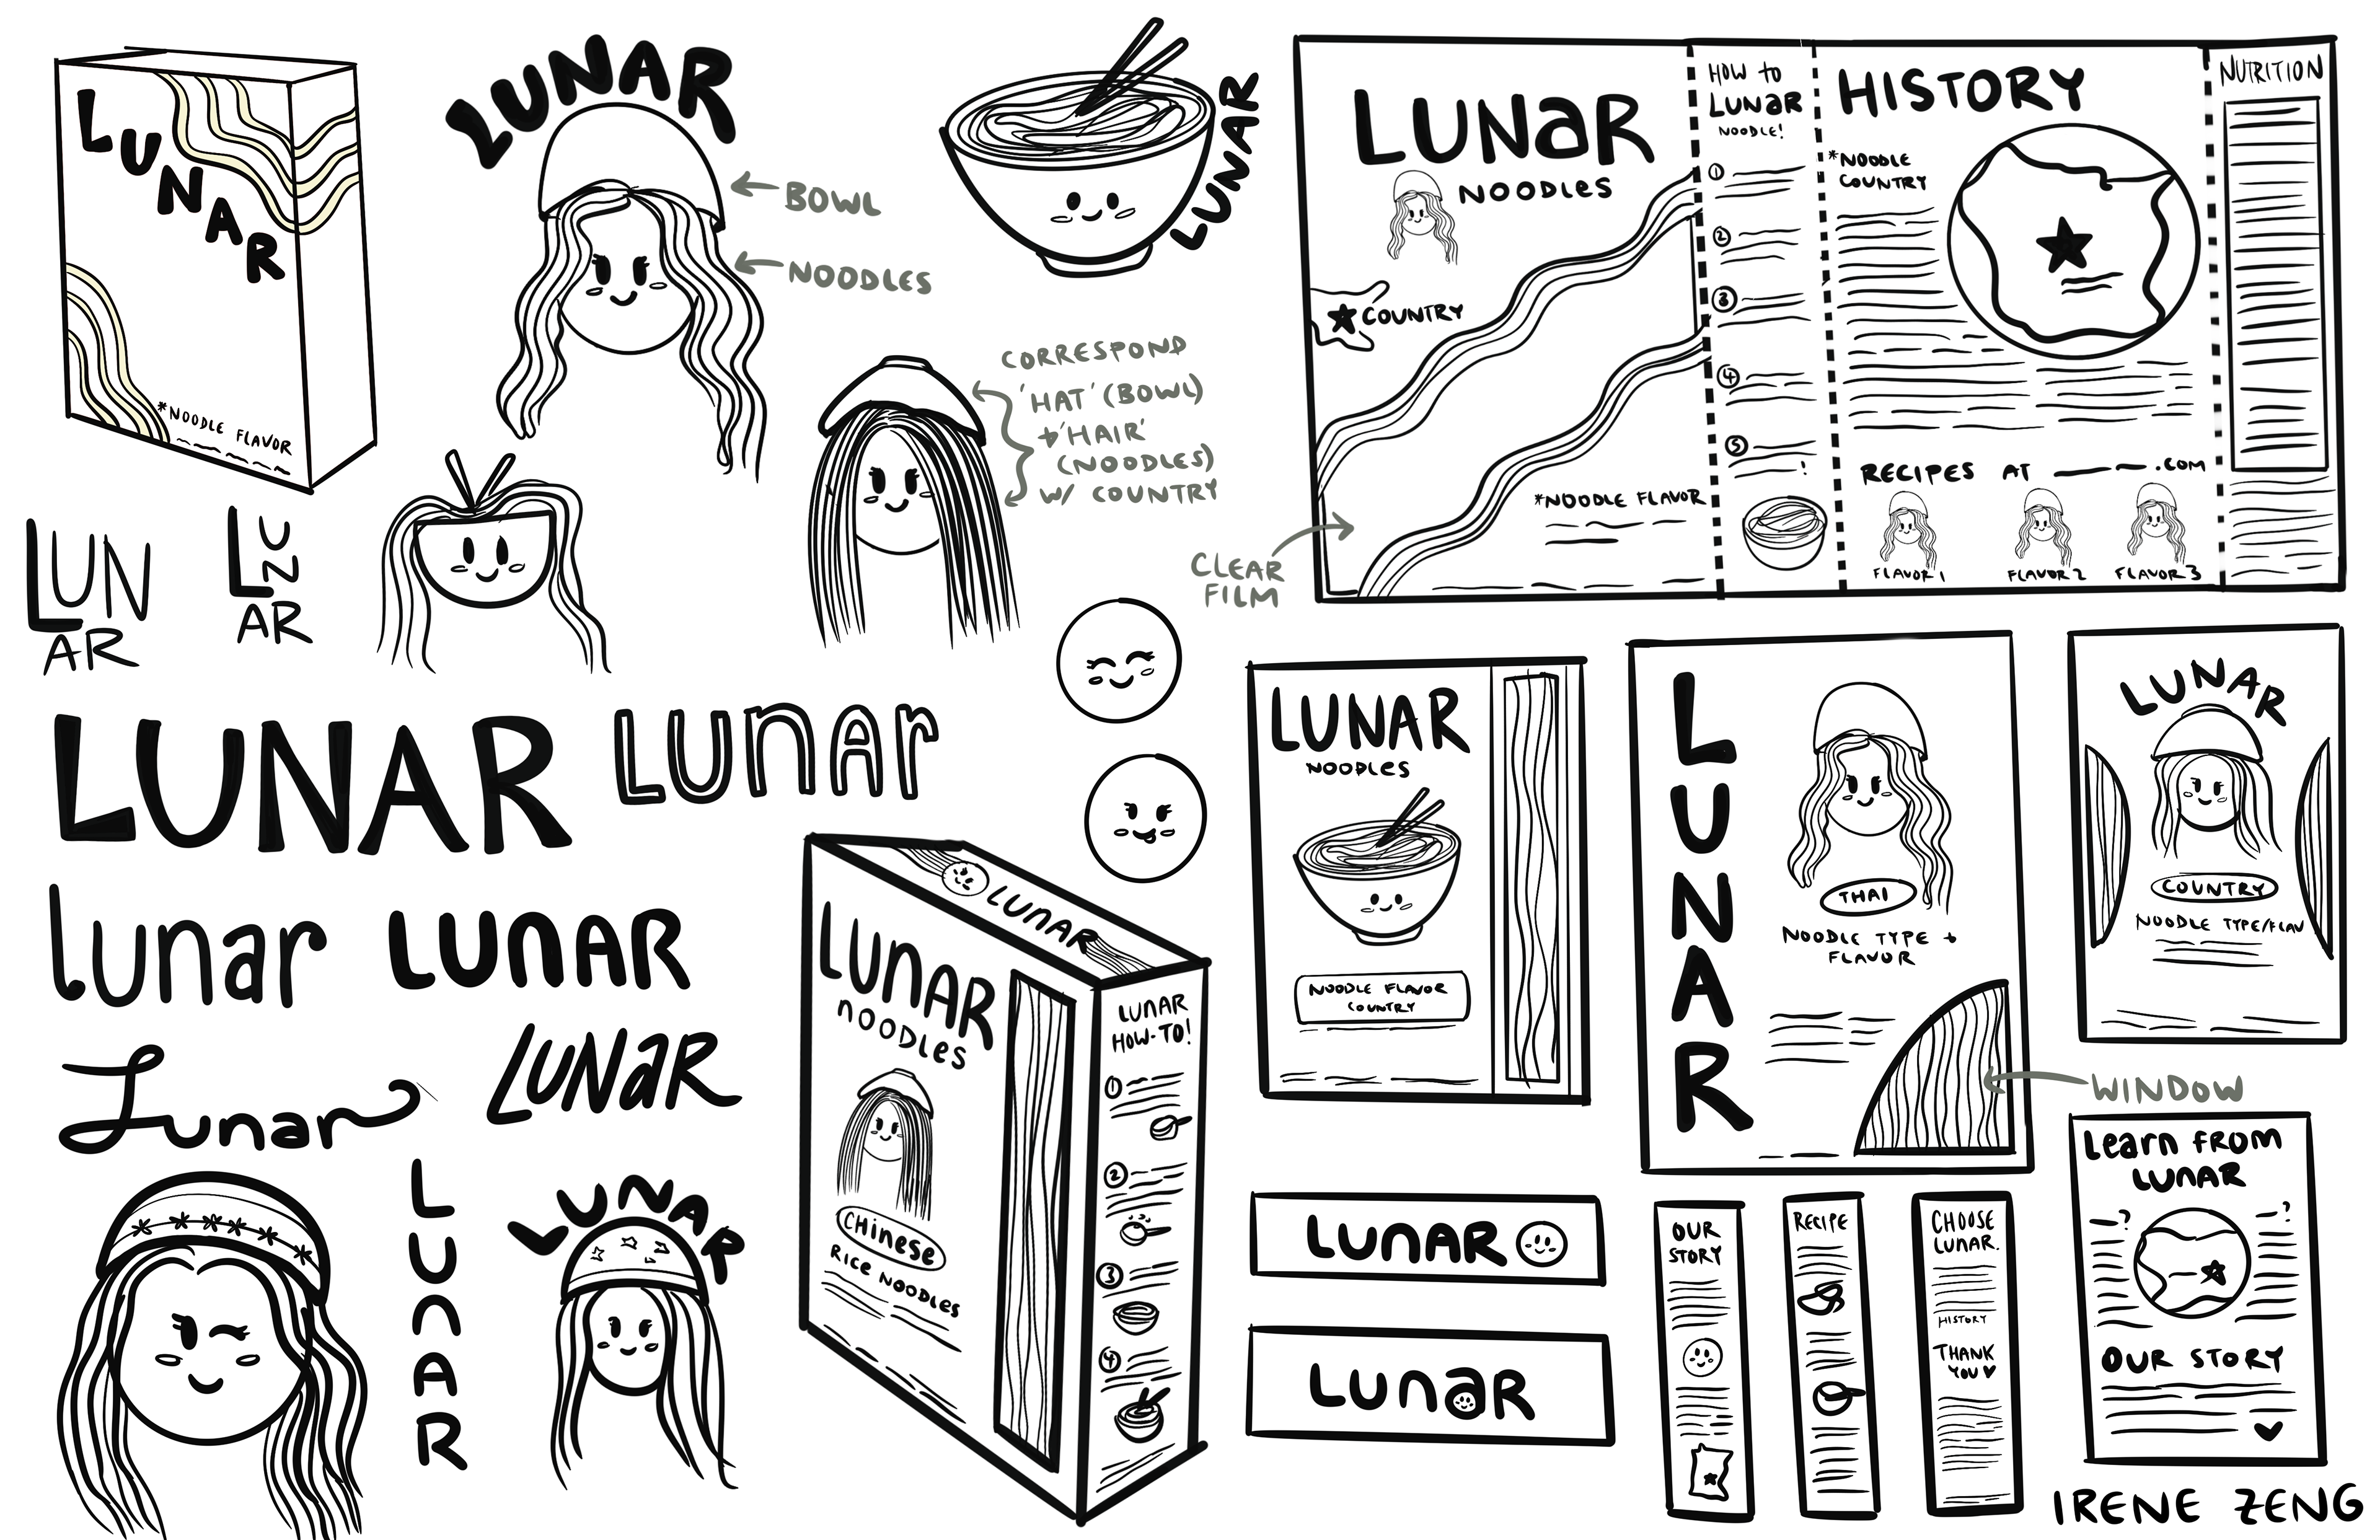 LUNAR
*NOODLE FLAVOR
LUNAR
BOWL
NOODLES
LUNAR
CORRESPOND
'HAT' (BOWL)
+ 'HAIR'
(NOODLES)
W/ COUNTRY
LUNAR
NOODLES
COUNTRY
*NOODLE FLAVOR
CLEAR
FILM
HOW to
LUNaR
NOODLE!
1
2
3
4
5
!
HISTORY
*NOODLE
COUNTRY
RECIPES AT
.COM
FLAVOR 1
FLAVOR 2
FLAVOR 3
NUTRITION
LUN
AR
LUN
AR
LUNAR
LUnAr
lunar
LUnAR
Lunar
LUNaR
LUnAR
LUNAR
LUNAR
LUnAR
nOODLES
CHinese
RICE NOODLES
LUNAR
HOW-TO!
1
2
3
4
LUNAR
NOODLES
NOODLE FLAVOR
COUNTRY
LUNAR
THAI
NOODLE TYPE +
FLAVOR
WINDOW
LUNAR
COUNTRY
NOODLE TYPE/FLAV
LUnAR
LUnaR
OUR
STORY
RECIPE
CHOOSE
LUNAR.
HISTORY
THANK
YOU ♥
Learn FROM
LUNAR
?
?
OUR STORY
IRENE ZENG